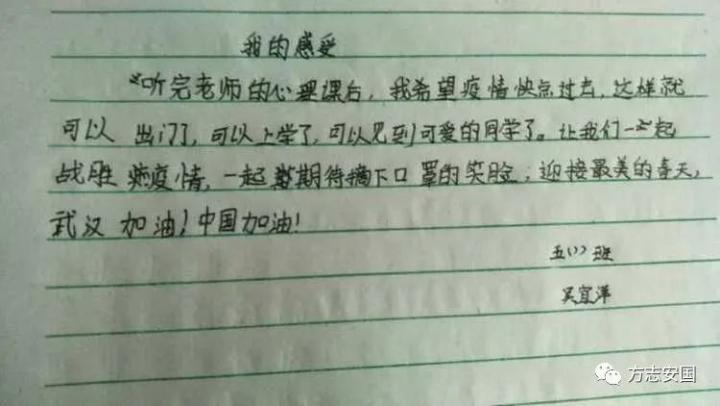 我的感受
听完老师的心理课后，我希望疫情快点过去，这样就
可以出门了，可以上学了，可以见到可爱的同学了。让我们一起
战胜疫情，一起期待摘下口罩的笑脸；迎接最美的春天，
武汉加油！中国加油！
五(1)班
吴宜洋
方志安国